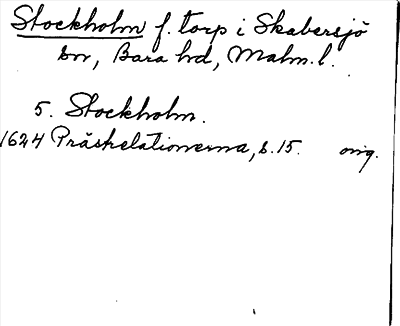 Stockholm f. torp i Skabersjö
sn, Bara hd, Malm. l.
5. Stockholm.
1624 Prästrelationerna, s. 15. orig.